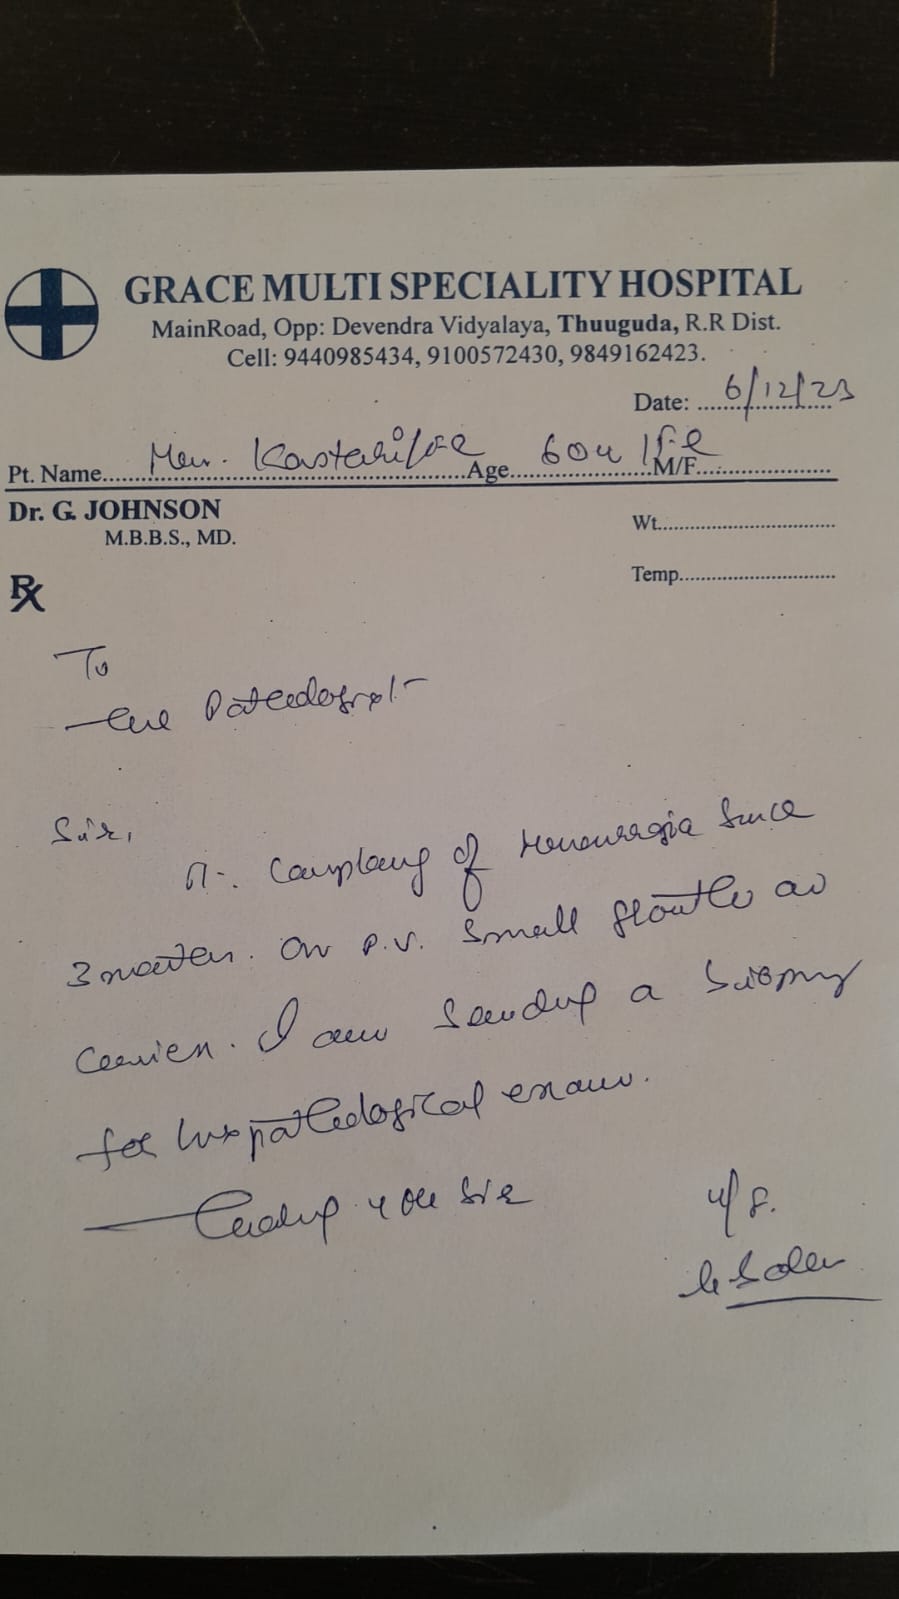 GRACE MULTI SPECIALITY HOSPITAL
MainRoad, Opp: Devendra Vidyalaya, Thuuguda, R.R Dist.
Cell: 9440985434, 9100572430, 9849162423.
Date: 6/12/23
Pt. Name Age 60 M/F
Dr. G. JOHNSON
M.B.B.S., MD.
Wt.
Rx
Temp.
To
the Pathologist
Sir,
Pt. Complang of since
3 months. On P.V. Small growth
Cervix. I am sending a biopsy
for pathological exam.
Thanking you Sir